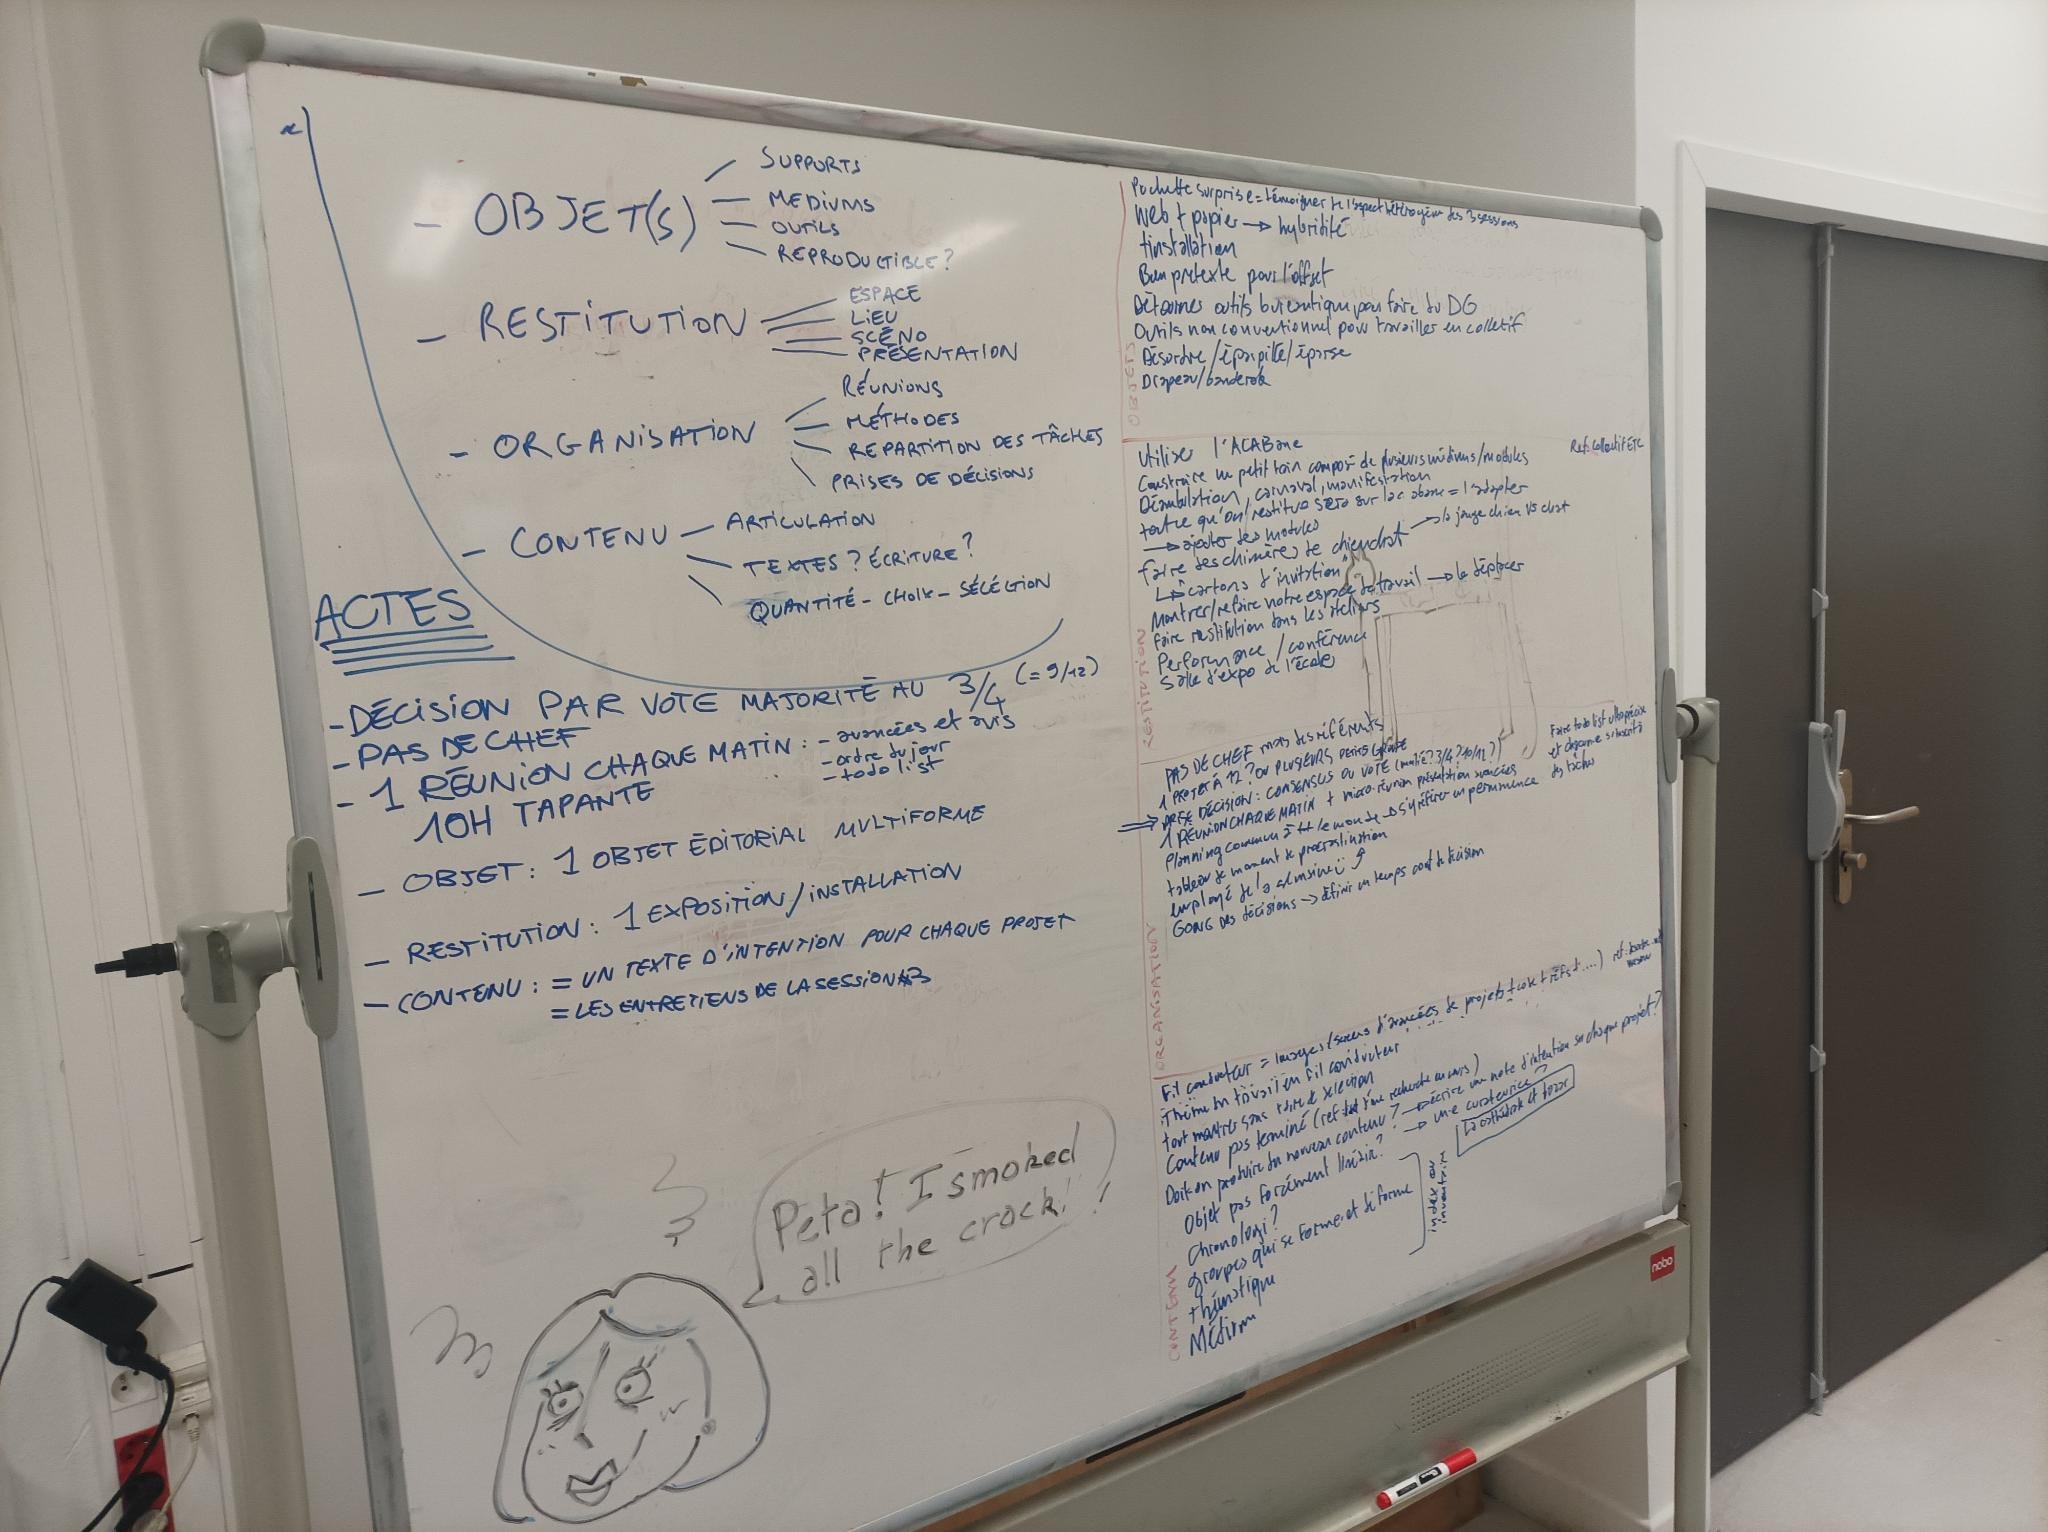 - OBJET(S)
SUPPORTS
MEDIUMS
OUTILS
REPRODUCTIBLE?
- RESTITUTION
ESPACE
LIEU
SCÉNO
PRÉSENTATION
- ORGANISATION
RÉUNIONS
MÉTHODES
REPARTITION DES TÂCHES
PRISES DE DÉCISIONS
- CONTENU
ARTICULATION
TEXTES? ÉCRITURE?
QUANTITÉ - CHOIX - SÉLÉCTION
ACTES
- DÉCISION PAR VOTE MAJORITÉ AU 3/4 (= 9/12)
- PAS DE CHEF
- 1 RÉUNION CHAQUE MATIN : - avancées et avis
- ordre du jour
- todo list
10H TAPANTE
- OBJET : 1 OBJET ÉDITORIAL MULTIFORME
- RESTITUTION : 1 EXPOSITION/INSTALLATION
- CONTENU : = UN TEXTE D'INTENTION POUR CHAQUE PROJET
= LES ENTRETIENS DE LA SESSION 3
Peta! I smoked
all the crack!!
OBJETS
Pochette surprise = témoigner de l'aspect hétérogène des 3 sessions
Web + papier → hybridité
+installation
Bon pretexte pour l'offset
Détourner outils bureautique pour faire du DG
Outils non conventionnel pour travailler en collectif
Désordre/éparpillé/éparse
Drapeau/banderole
RESTITUTION
Utiliser l'ACABane
Ref: Collectif ETC
Construire un petit train composé de plusieurs médiums/modules
Déambulation, carnaval, manifestation
tout ce qu'on restitue sera sur la cabane = l'adapter
→ ajouter des modules
faire des chimères de chienchat → la jauge chien VS chat
↳ cartons d'invitation
Montrer/refaire notre espace de travail → le déplacer
faire restitution dans les ateliers
Performance / conférence
Salle d'expo de l'école
ORGANISATION
PAS DE CHEF mais des référents
1 PROJET À 12? OU PLUSIEURS PETITS GROUPE
PRISE DÉCISION : CONSENSUS OU VOTE (moitié? 3/4? 10/12?)
1 RÉUNION CHAQUE MATIN + micro-réunion présentation avancées
Planning commun à tt le monde → s'y référer en permanence
Faire todo list ultra précise
et chacun·e s'inscrit à
des tâches
tableau de moment de procrastination
employé de la semaine
GONG DES décisions → définir un temps court de décision
CONTENU
Fil conducteur = images/screens d'avancées de projets + code + réfs + ....)
Thème du travail en fil conducteur
tout montrer sans faire de sélection
Contenu pas terminé (ref d'une recherche en cours)
Doit on produire du nouveau contenu? → écrire une note d'intention sur chaque projet?
Objet pas forcément linéair? → un·e curateurice?
La cathédrale et bazar
Chronologi?
groupes qui se forme et dé forme
thématique
Médium
index ou
inventaire
nobo